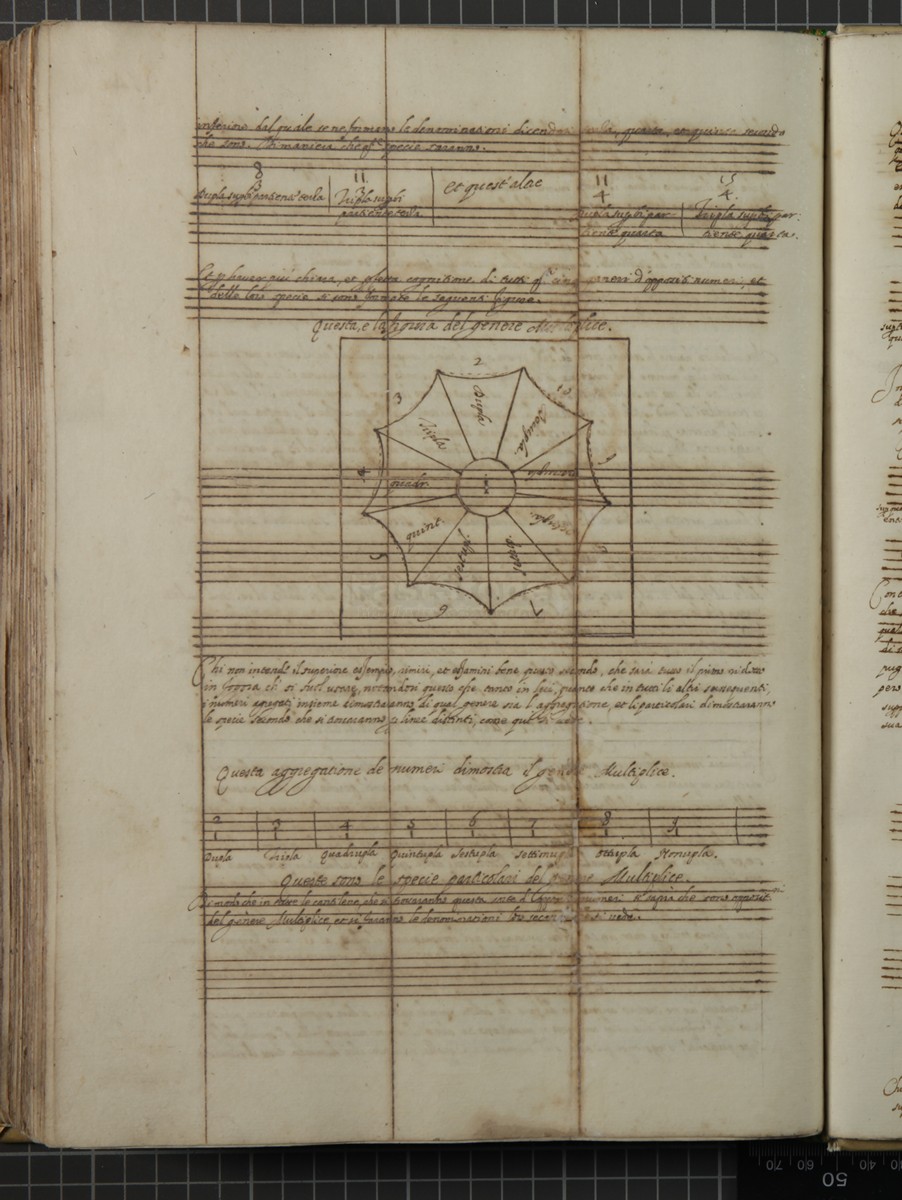 inferiore dal quale se ne formano le denominationi dicendo terza, quarta, et quinta secondo
che sono. Di maniera che qste specie saranno.
8 11 11 15
3 3 4 4
Dupla supbipartiente terza Tripla supbi et quest' altre Dupla suptripar Tripla suptripar
partiente terza tiente quarta tiente quarta.
Et p haver più chiara, et perfetta cognitione di tutti qsti cinque generi d'oppositi numeri, et
delle loro specie si sono formate le seguenti figure.
Questa, è la figura del genere Moltiplice.
2
Dupla
3
Tripla
4
quadr.
5
quint.
6
sestupla
7
8
9
10
1
Chi non intende il superiore essempio, rimiri, et essamini bene questo secondo, che sarà tutto il primo ridotto
in la che si suol usare, notandosi questo che tanto in lui, quanto che in tutti li altri susseguenti,
i numeri agregati insieme dimostraranno di qual genere sia l'aggregatione, et li particolari dimostraranno
le specie secondo che si trovaranno p linee distinti, come qui si vede.
Questa aggregatione de numeri dimostra il genere Multiplice.
2 3 4 5 6 7 8 9
1 1 1 1 1 1 1 1
Dupla Tripla Quadrupla Quintupla Sestupla Settimupla ottupla Nonupla.
Queste sono le specie particolari del genere Multiplice.
Di modo che in tutte le cantilene, ove si trovaranno questa sorte d' numeri si saprà che sono oppositi
del genere Multiplice, et si faranno le denominationi loro secondo che si vede.